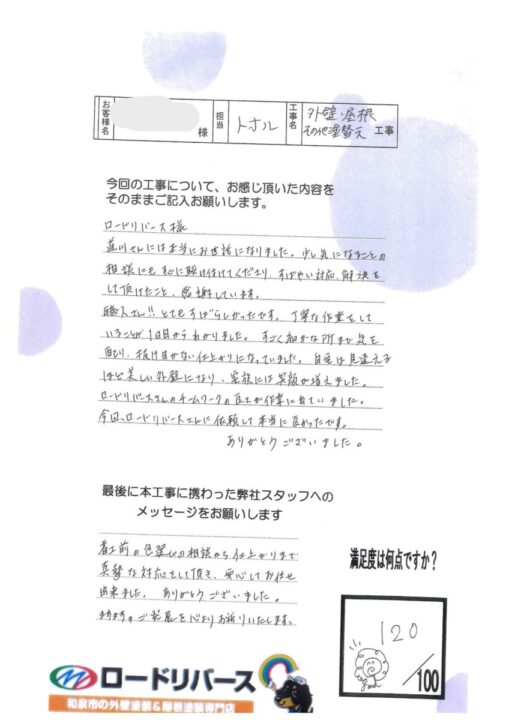 お客様名
様
担当
トオル
工事名
外壁・屋根
その他塗替え
工事
今回の工事について、お感じ頂いた内容を
そのままご記入お願いします。
ロードリバース様
道川さんには本当にお世話になりました。少し気になることの
相談にもすぐに駆け付けてくださり、すばやい対応、解決を
して頂けたこと、感謝しています。
職人さん!! とてもすばらしかったです。丁寧な作業をして
いることが1日目からわかりました。すごく細かな所まで気を
配り、抜け目がない仕上がりになっていました。自宅は見違える
ほど美しい外壁になり、家族には笑顔が増えました。
ロードリバースさんのチームワークの良さが作業に出ていました。
今回、ロードリバースさんに依頼して本当に良かったです。
ありがとうございました。
最後に本工事に携わった弊社スタッフへの
メッセージをお願いします
着工前の色選びの相談から仕上がりまで
真摯な対応をして頂き、安心してお任せ
出来ました。ありがとうございました。
ますます、ご発展を心よりお祈りいたします。
満足度は何点ですか？
120
/100
ロードリバース
和泉市の外壁塗装&屋根塗装専門店